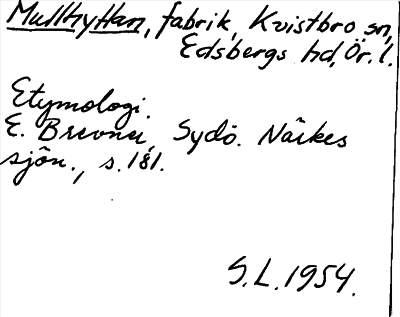 Mullhyttan, fabrik, Kvistbro sn,
Edsbergs hd, Ör. l.
Etymologi.
E. Brevner, Sydö. Närkes
sjön., s. 181.
S.L. 1954.